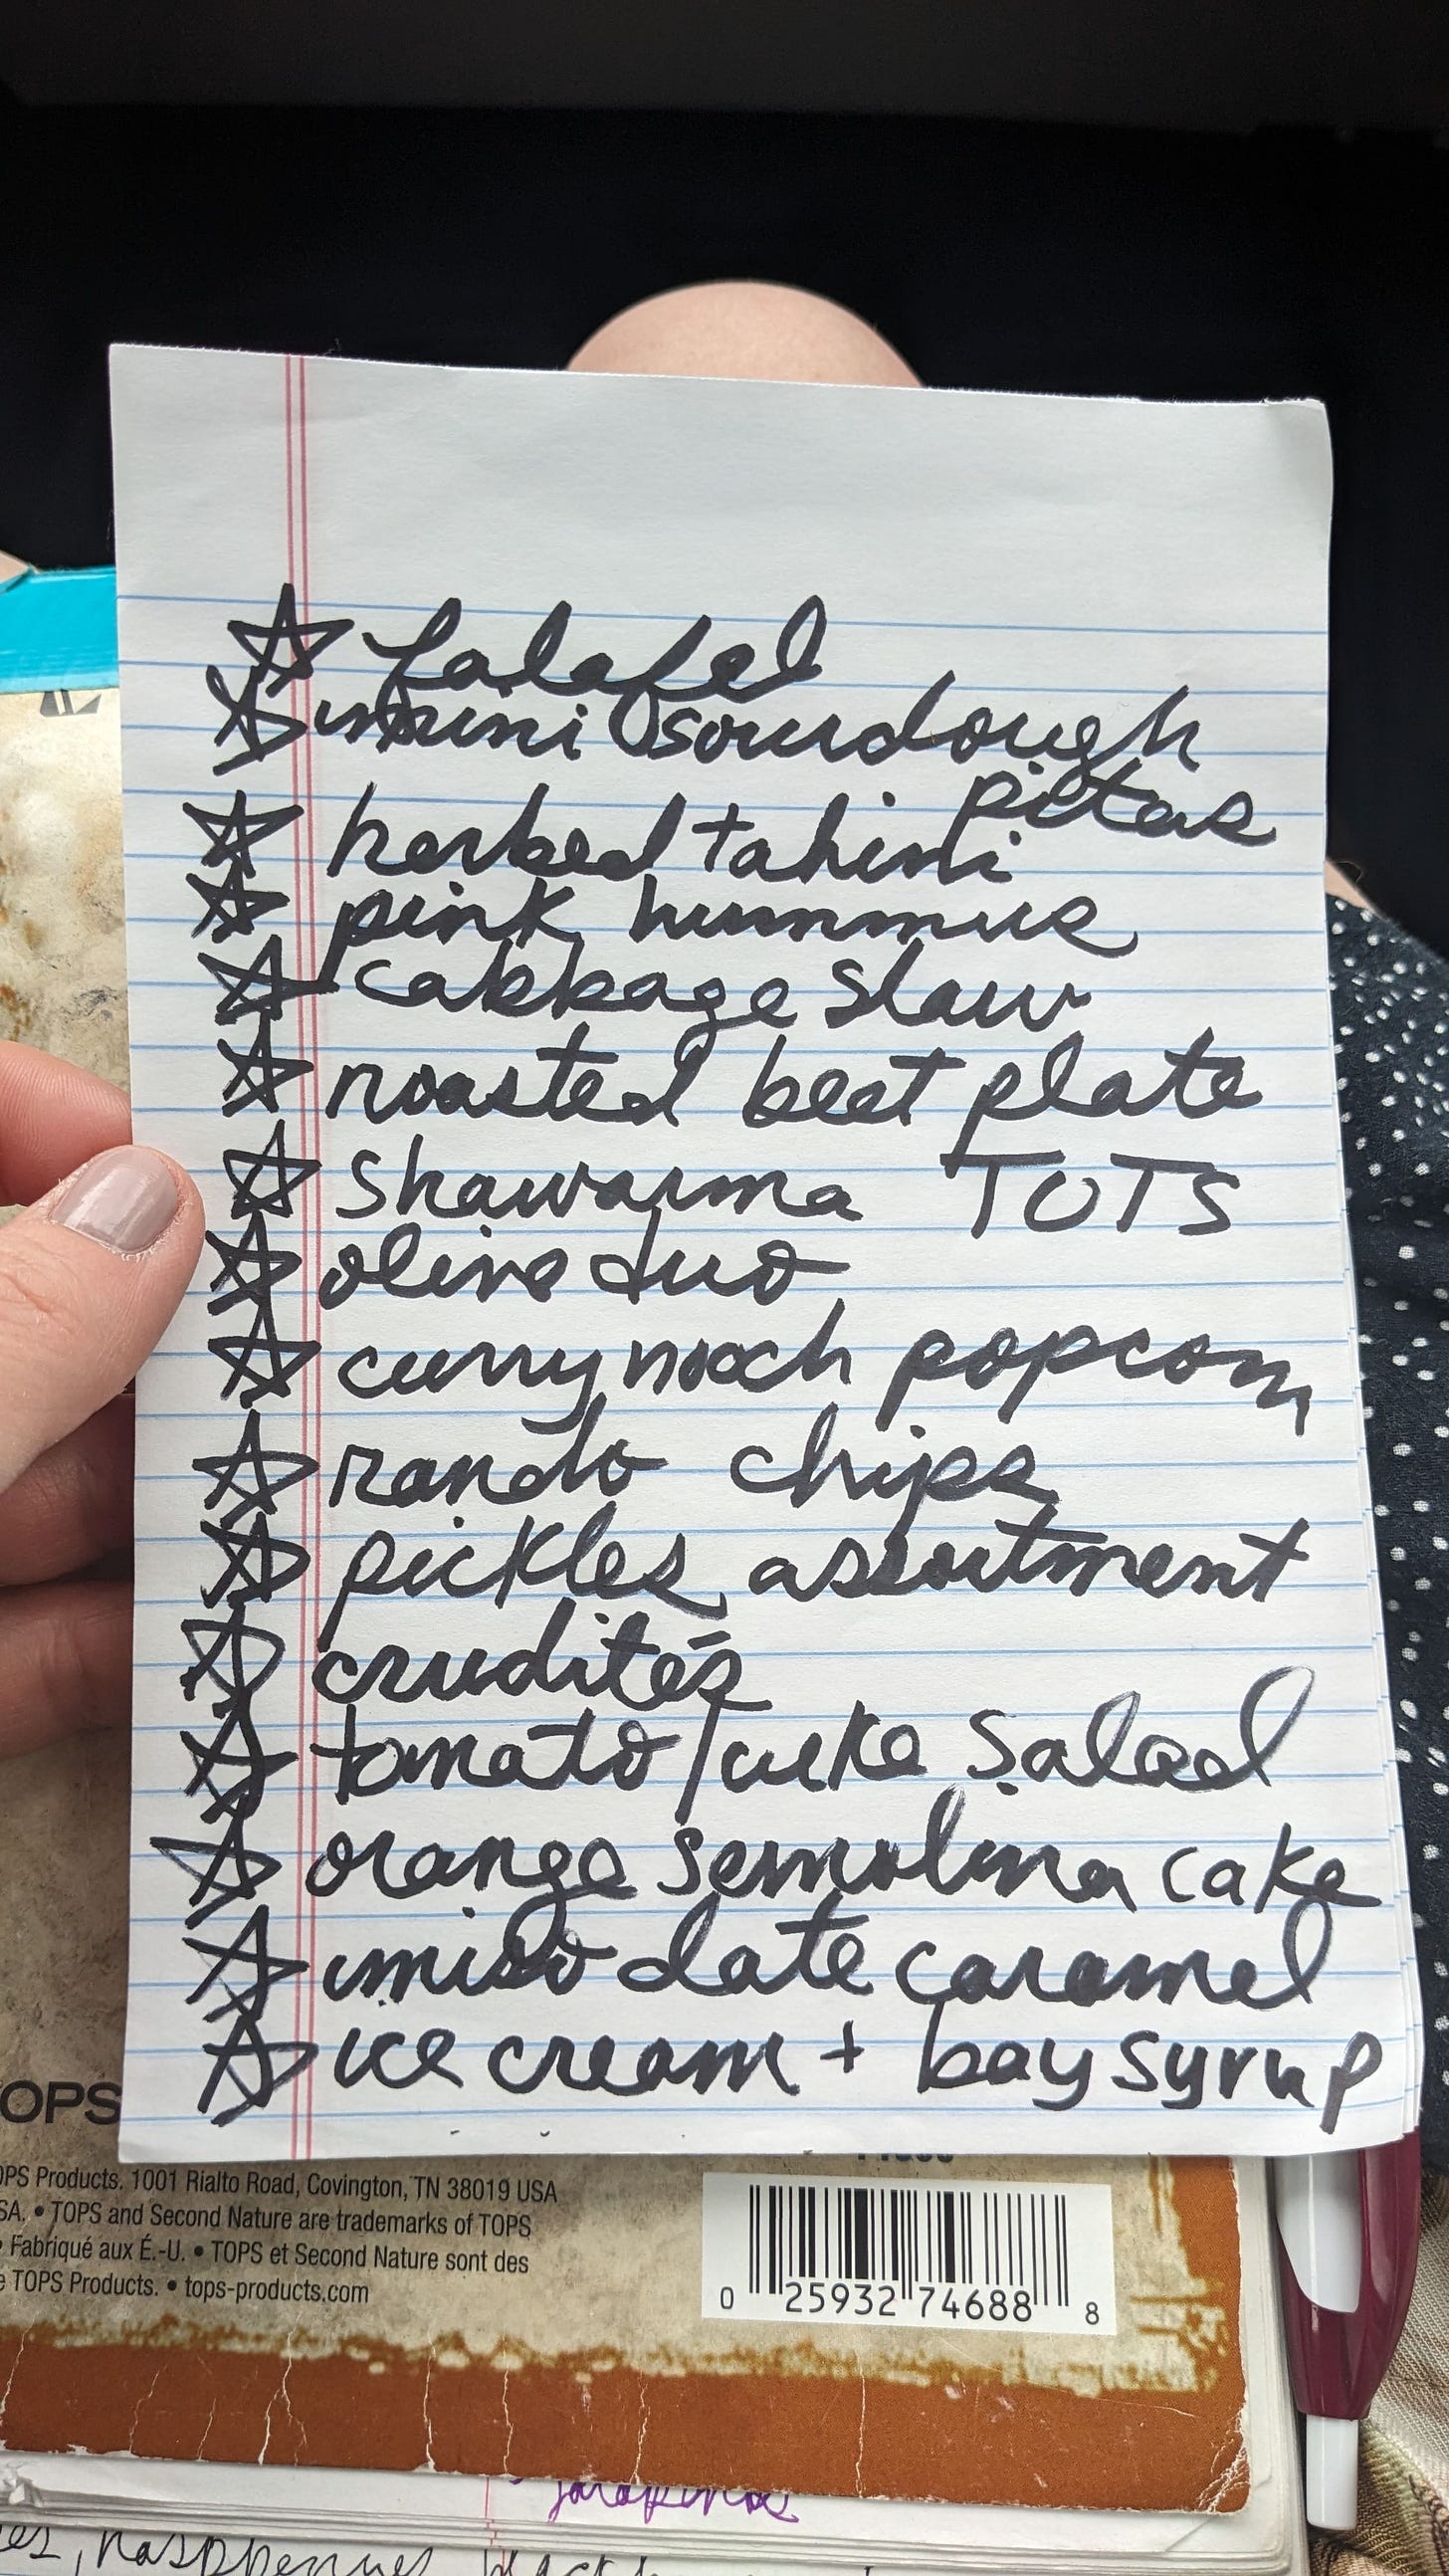 falafel
mini sourdough
pitas
herbed tahini
pink hummus
cabbage slaw
roasted beet plate
shawarma TOTS
olive duo
curry nooch popcorn
rando chips
pickles assortment
crudités
tomato/cuke salad
orange semolina cake
miso date caramel
ice cream + bay syrup
OPS
OPS Products. 1001 Rialto Road, Covington, TN 38019 USA
SA. • TOPS and Second Nature are trademarks of TOPS
Fabriqué aux É.-U. • TOPS et Second Nature sont des
e TOPS Products. • tops-products.com
0 25932 74688 8